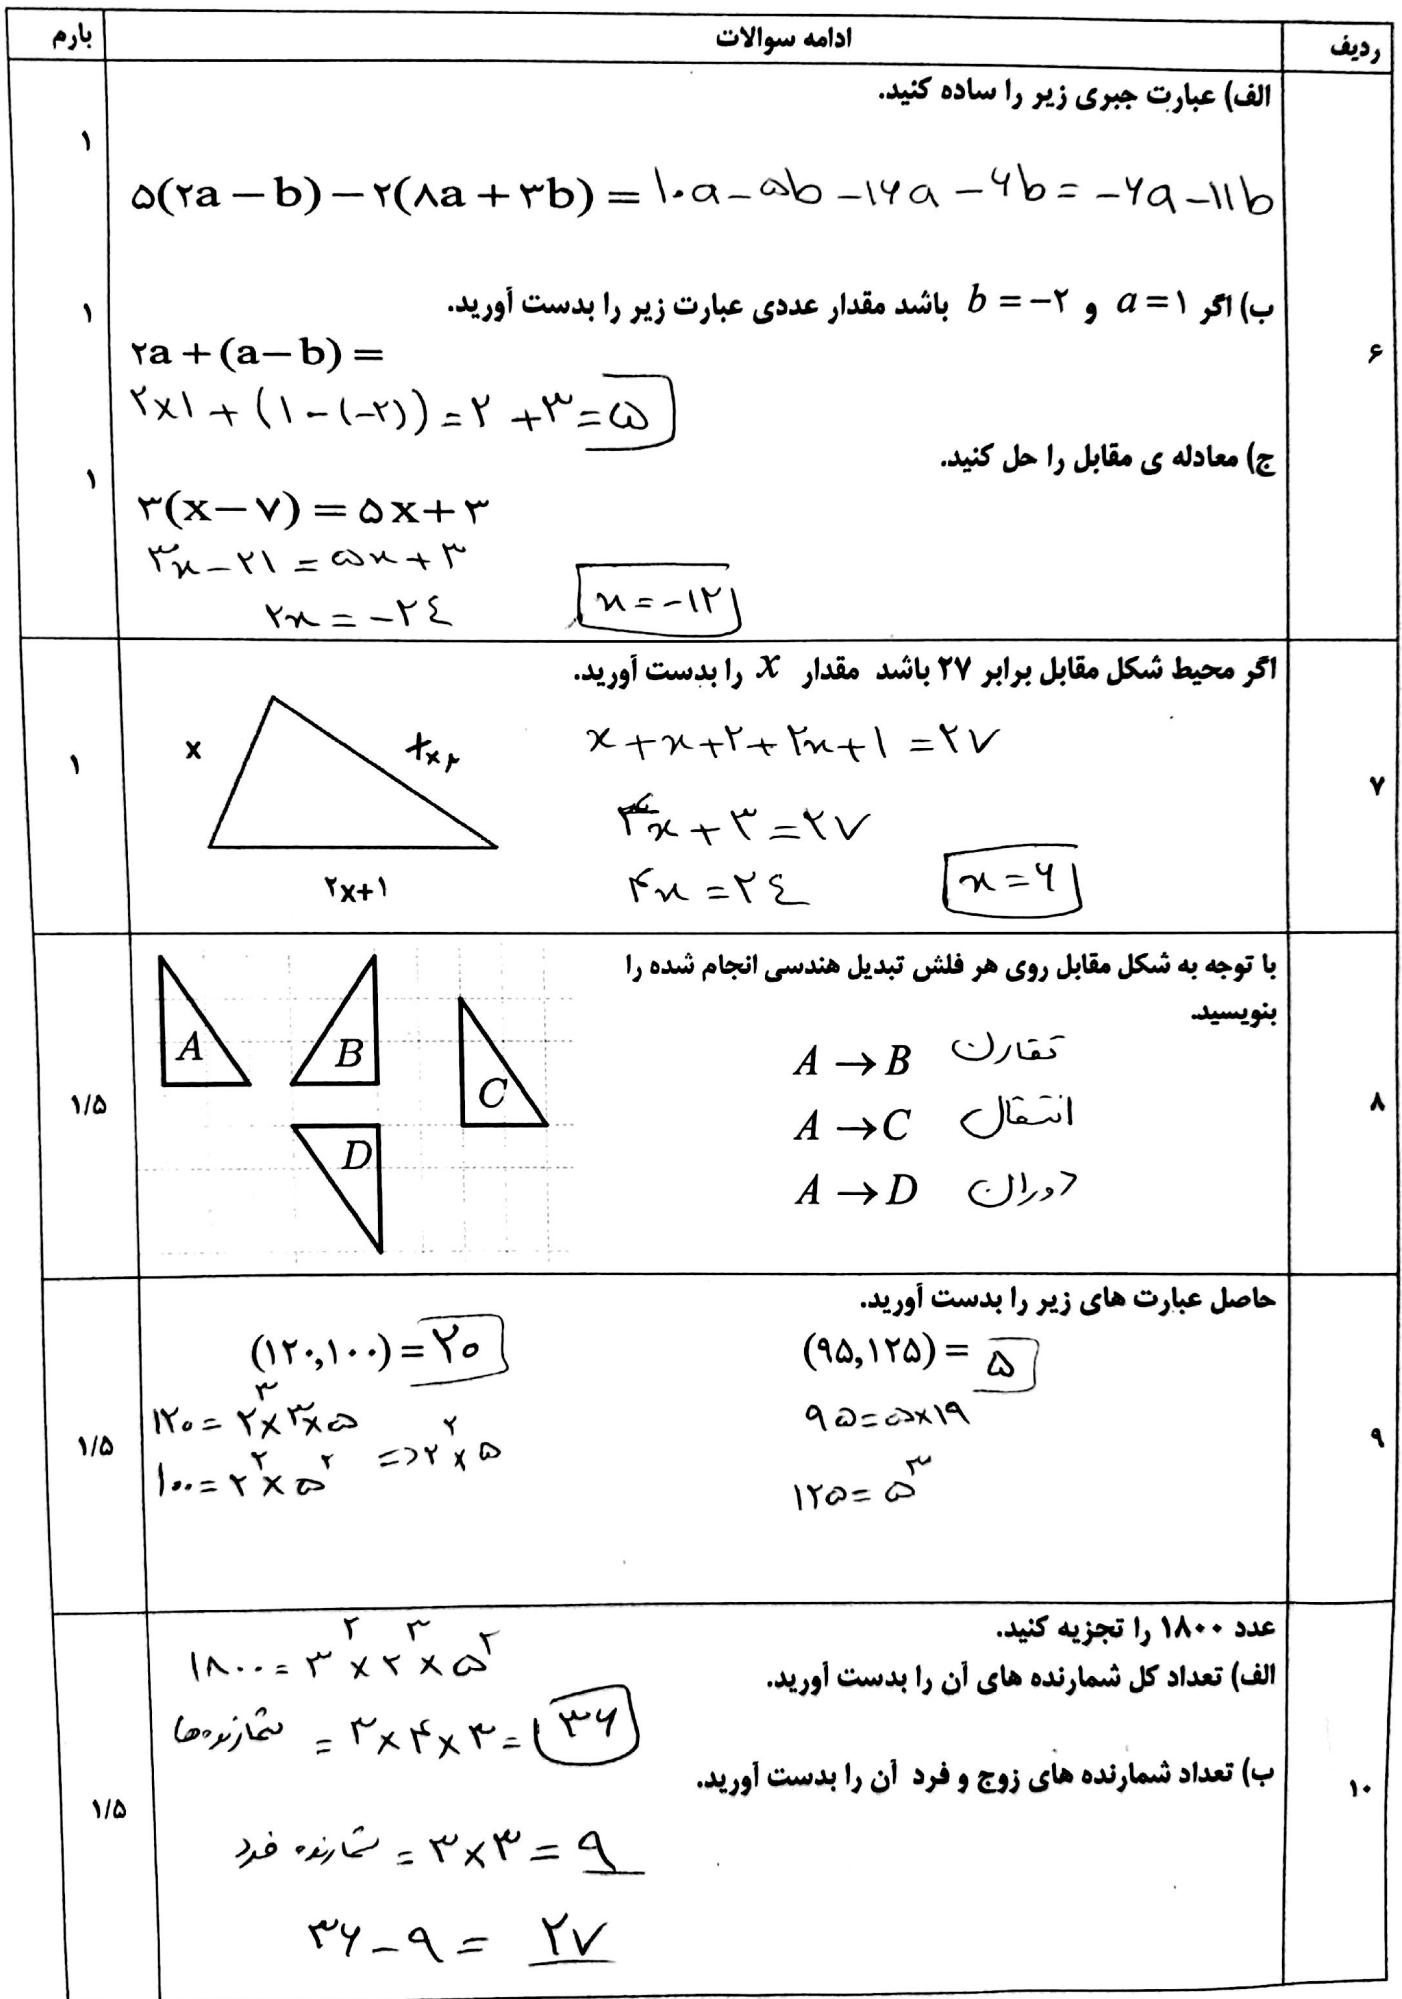 ردیف	ادامه سوالات	بارم
۶
الف) عبارت جبری زیر را ساده کنید.
۱
۵(۲a − b) − ۲(۸a + ۳b) = ۱۰a − ۵b − ۱۶a − ۶b = −۶a − ۱۱b
ب) اگر a = ۱ و b = −۲ باشد مقدار عددی عبارت زیر را بدست آورید.
۱
۲a + (a − b) =
۲×۱ + (۱ − (−۲)) = ۲ + ۳ = ۵
ج) معادله ی مقابل را حل کنید.
۱
۳(x − ۷) = ۵x + ۳
۳x − ۲۱ = ۵x + ۳
۲x = −۲۴
x = −۱۲
۷
اگر محیط شکل مقابل برابر ۲۷ باشد مقدار x را بدست آورید.
۱
x
۲x+۱
x + x + ۲ + ۲x + ۱ = ۲۷
۴x + ۳ = ۲۷
۴x = ۲۴
x = ۶
۸
با توجه به شکل مقابل روی هر فلش تبدیل هندسی انجام شده را
بنویسید.
۱/۵
A
B
C
D
A → B تقارن
A → C انتقال
A → D دوران
۹
حاصل عبارت های زیر را بدست آورید.
۱/۵
(۹۵,۱۲۵) = ۵
۹۵ = ۵×۱۹
۱۲۵ = ۵³
(۱۲۰,۱۰۰) = ۲۰
۱۲۰ = ۲³×۳×۵
۱۰۰ = ۲²×۵² => ۲²×۵
۱۰
عدد ۱۸۰۰ را تجزیه کنید.
۱۸۰۰ = ۳² × ۲³ × ۵²
الف) تعداد کل شمارنده های آن را بدست آورید.
شمارنده‌ها = ۳×۴×۳ = ۳۶
ب) تعداد شمارنده های زوج و فرد آن را بدست آورید.
۱/۵
شمارنده فرد = ۳×۳ = ۹
۳۶ − ۹ = ۲۷